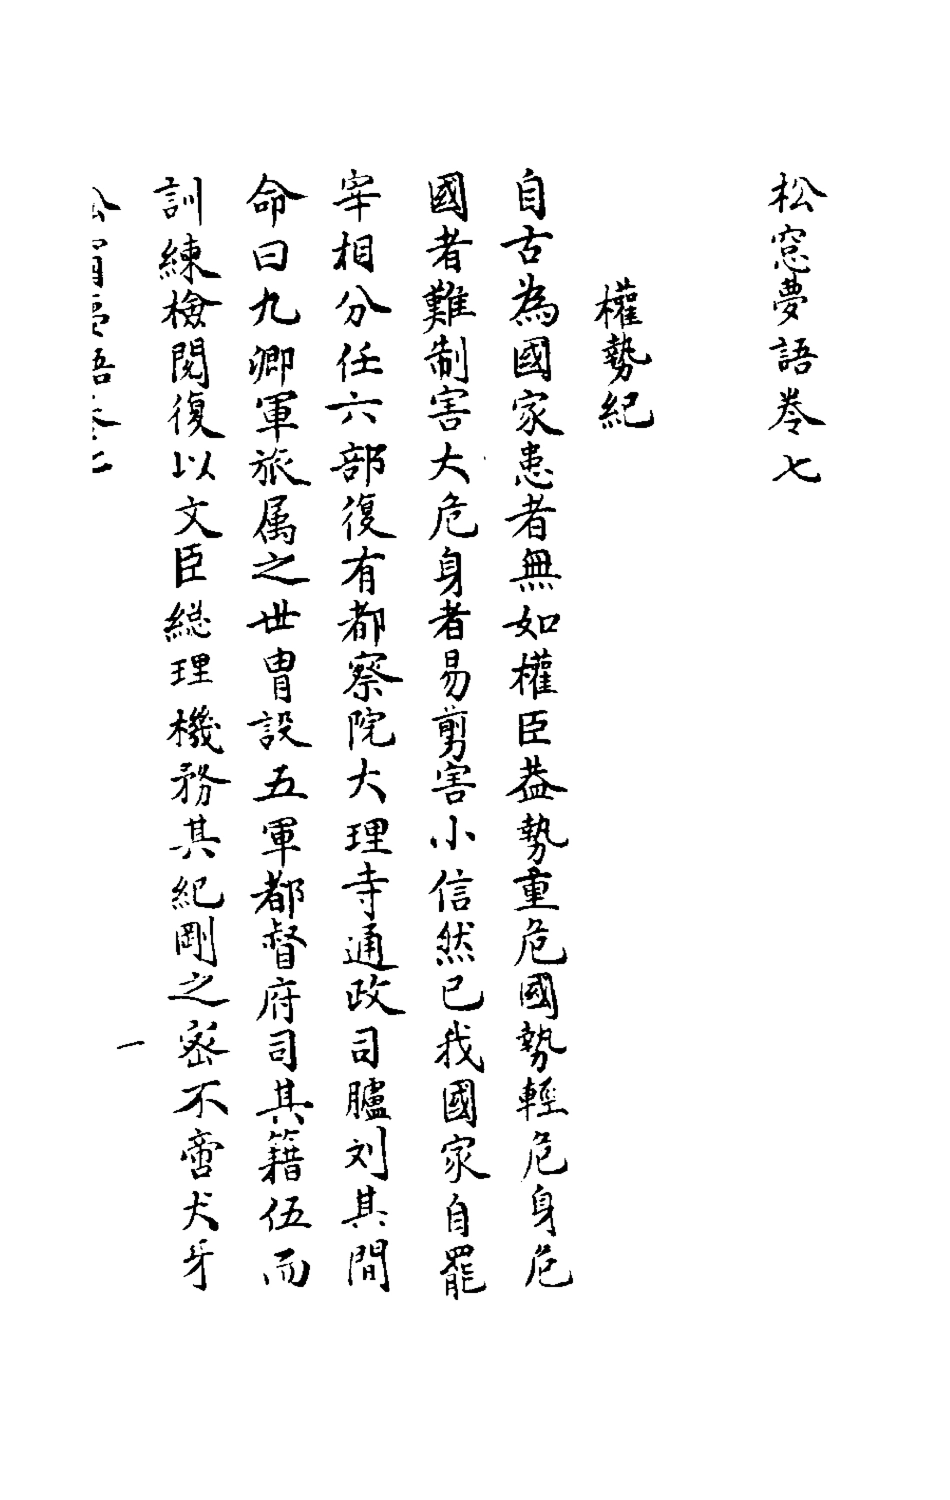 松窓夢語卷七
權勢紀
自古為國家患者無如權臣葢勢重危國勢輕危身危
國者難制害大危身者易剪害小信然已我國家自罷
宰相分任六部復有都察院大理寺通政司臚列其間
命曰九卿軍旅属之世胄設五軍都督府司其籍伍而
訓練檢閱復以文臣総理機務其紀剛之密不啻犬牙
松窓夢語卷七
一